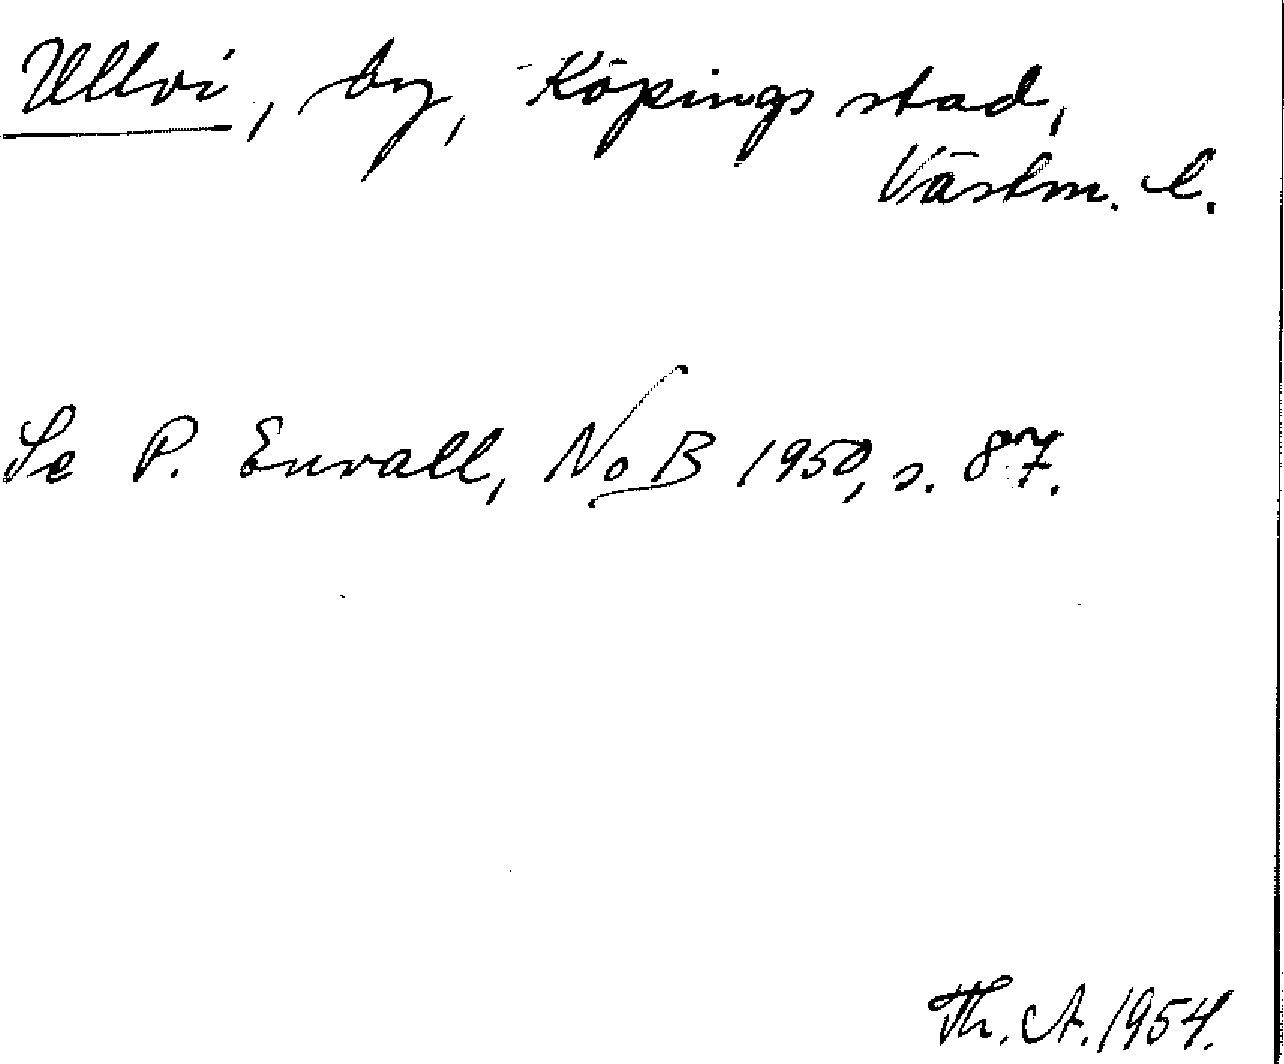 Ullvi, by, Köpings stad,
Västm. l.
Se P. Envall, NoB 1950, s. 87.
Th. A. 1954.